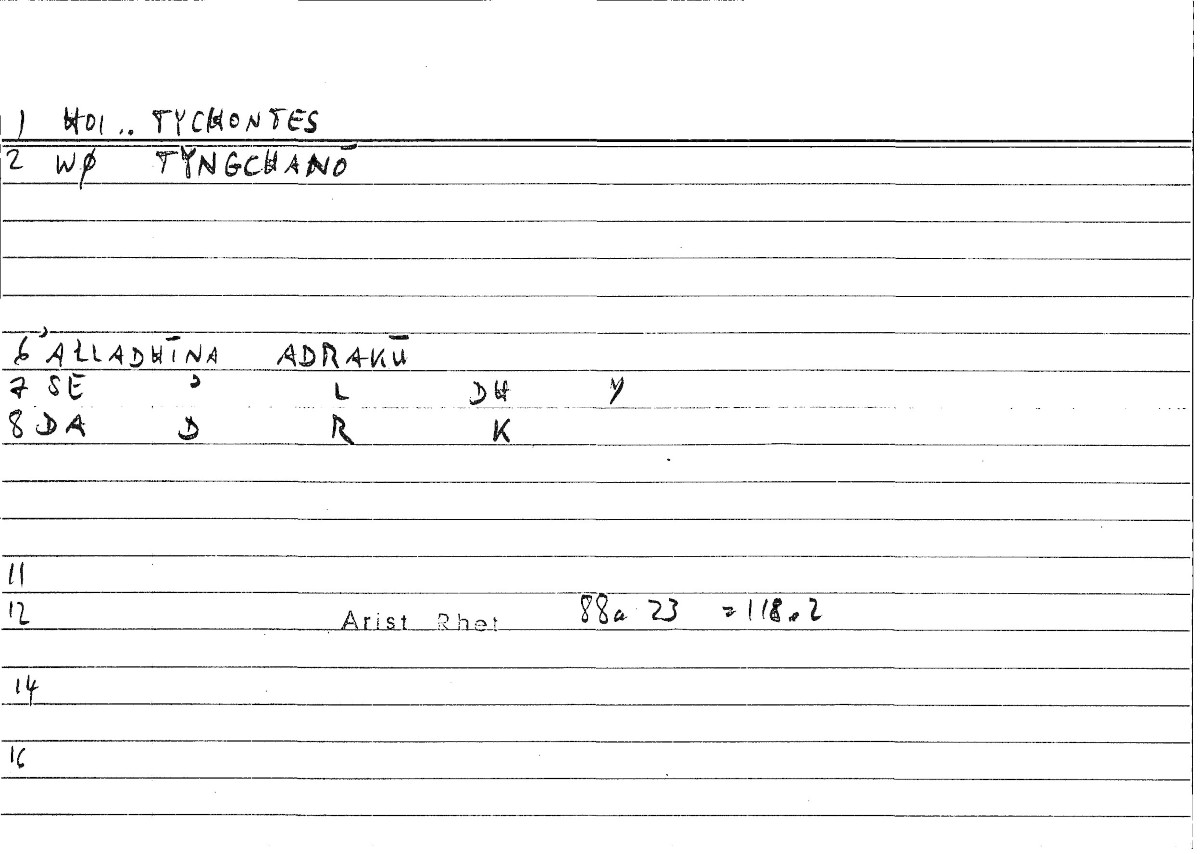 1 HOI .. TYCHONTES
2 WØ TYNGCHANŌ
6 'ALLADHĪNA ADRAKŪ
7 SE ' L DH Y
8 DA D R K
11
12 Arist Rhet 88a 23 = 118.2
14
16